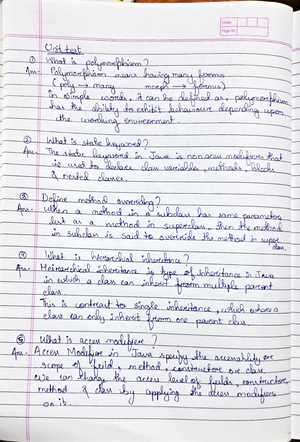 Date:
Page No.
Unit test
① What is polymorphism?
Ans- Polymorphism means having many forms
( poly → many morph → forms)
In simple words, it can be defined as, polymorphism
has the ability to exhibit behaviour depending upon
the working environment.
② What is static keyword?
Ans- The static keyword in Java is non access modifiers that
is used to declare class variables, methods, blocks
& nested classes.
③ Define method overriding?
Ans- When a method in a subclass has same parameters
list as a method in superclass, then the method
in subclass is said to override the method in super
class.
④ What is hierarchial inheritance?
Ans- Heirarchial inheritance is type of inheritance in Java
in which a class can inherit from multiple parent
class.
This is contrast to single inheritance, which where a
class can only inherit from one parent class.
⑤ What is access modifiers?
Ans- Access Modifiers in Java specify the accessability or
scope of field, method, constructors or class.
We can change the access level of fields, constructors,
method & class by applying the access modifiers
on it.